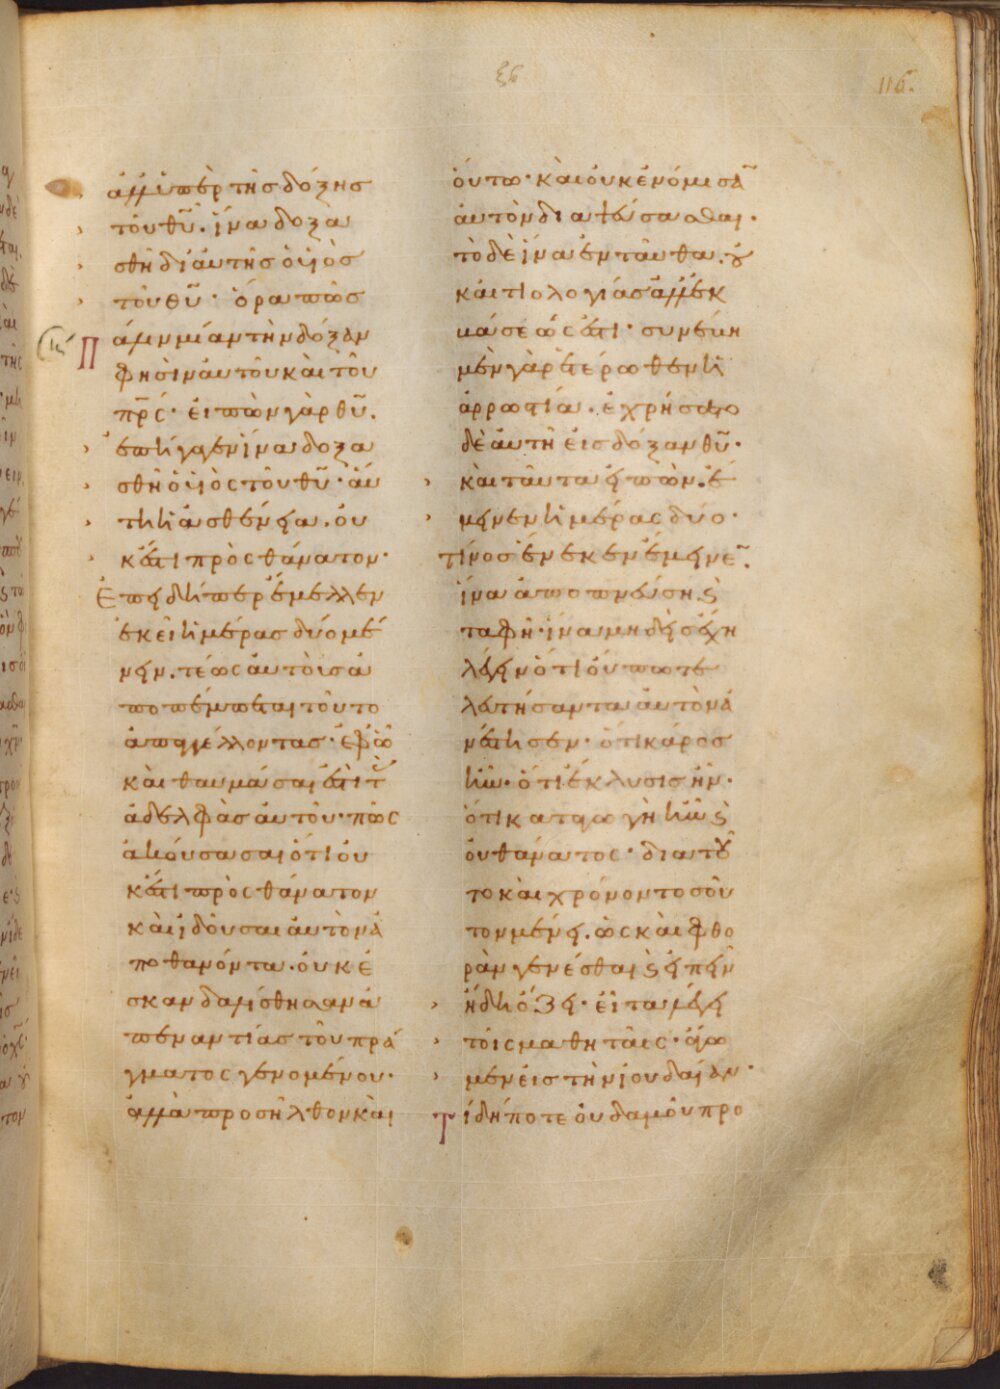 ξϛ
116.
ἀλλ' ὑπὲρ τῆς δόξης
τοῦ θῦ. ἵνα δοξα
σθῆ δι' αὐτῆς ὁ υἱὸς
τοῦ θῦ· ὅρα πῶς
Πάλιν μίαν τὴν δόξαν
φησὶν αὐτοῦ καὶ τοῦ
πρς· εἰπὼν γὰρ θῦ.
ἐπήγαγεν ἵνα δοξα
σθῆ ὁ υἱὸς τοῦ θῦ· αὕ
τη ἡ ἀσθένεια. οὐ
κ ἔστι πρὸς θάνατον·
Ἐπειδήπερ ἔμελλεν
ἐκεῖ ἡμέρας δύο μέ
νειν. τέως αὐτοῖς ἀ
ποπέμπεται τοῦτο
ἀπαγγέλλοντας· ἐφ' ᾧ
καὶ θαυμάσαι ἔστι τ
ἀδελφὰς αὐτοῦ· πῶς
ἀκούσασαι ὅτι οὐ
κ ἔστι πρὸς θάνατον
καὶ ἰδοῦσαι αὐτὸν ἀ
ποθανόντα. οὐκ ἐ
σκανδαλίσθησαν ἀ
π' ἐναντίας τοῦ πρά
γματος γενομένου·
ἀλλὰ προσῆλθον καὶ
οὕτω· καὶ οὐκ ἐνόμισα
αὐτὸν διαψεύσασθαι·
τὸ δὲ ἵνα ἐνταῦθα. οὐ
κ αἰτιολογίας ἀλλ' ἐκ
βάσεώς ἐστι· συνέβη
μὲν γὰρ ἑτέρωθεν ἡ
ἀρρωστία. ἐχρήσατο
δὲ αὐτῆ εἰς δόξαν θῦ·
καὶ ταῦτα εἰπὼν. ἔ
μεινεν ἡμέρας δύο·
τίνος ἕνεκεν ἔμεινε.
ἵνα ἀποπνεύση ϛ
ταφῆ· ἵνα μηδεὶς ἔχη
λέγειν ὅτι οὔπω τε
λευτήσαντα αὐτὸν ἀ
νέστησεν· ὅτι κάρος
ἦν· ὅτι ἔκλυσις ἦν·
ὅτι καταγωγὴ ἦν ϛ
οὐ θάνατος· διατοῦ
το καὶ χρόνον τοσοῦ
τον μένει. ὡς καὶ φθο
ρὰν γενέσθαι ϛ εἰπεῖν
ἤδη ὄζει· εἶτα λέγει
τοῖς μαθηταῖς· ἄγω
μεν εἰς τὴν ἰουδαίαν·
Τί δήποτε οὐδαμοῦ προ